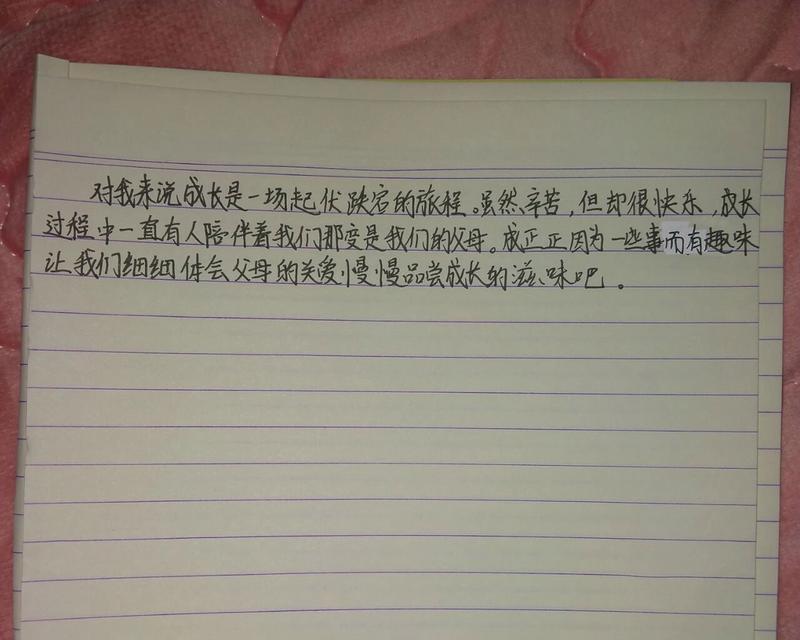 对我来说成长是一场起伏跌宕的旅程。虽然辛苦，但却很快乐，成长
过程中一直有人陪伴着我们那变是我们的父母。成正正因为一些事而有趣味
让我们细细体会父母的关爱，慢慢品尝成长的滋味吧。